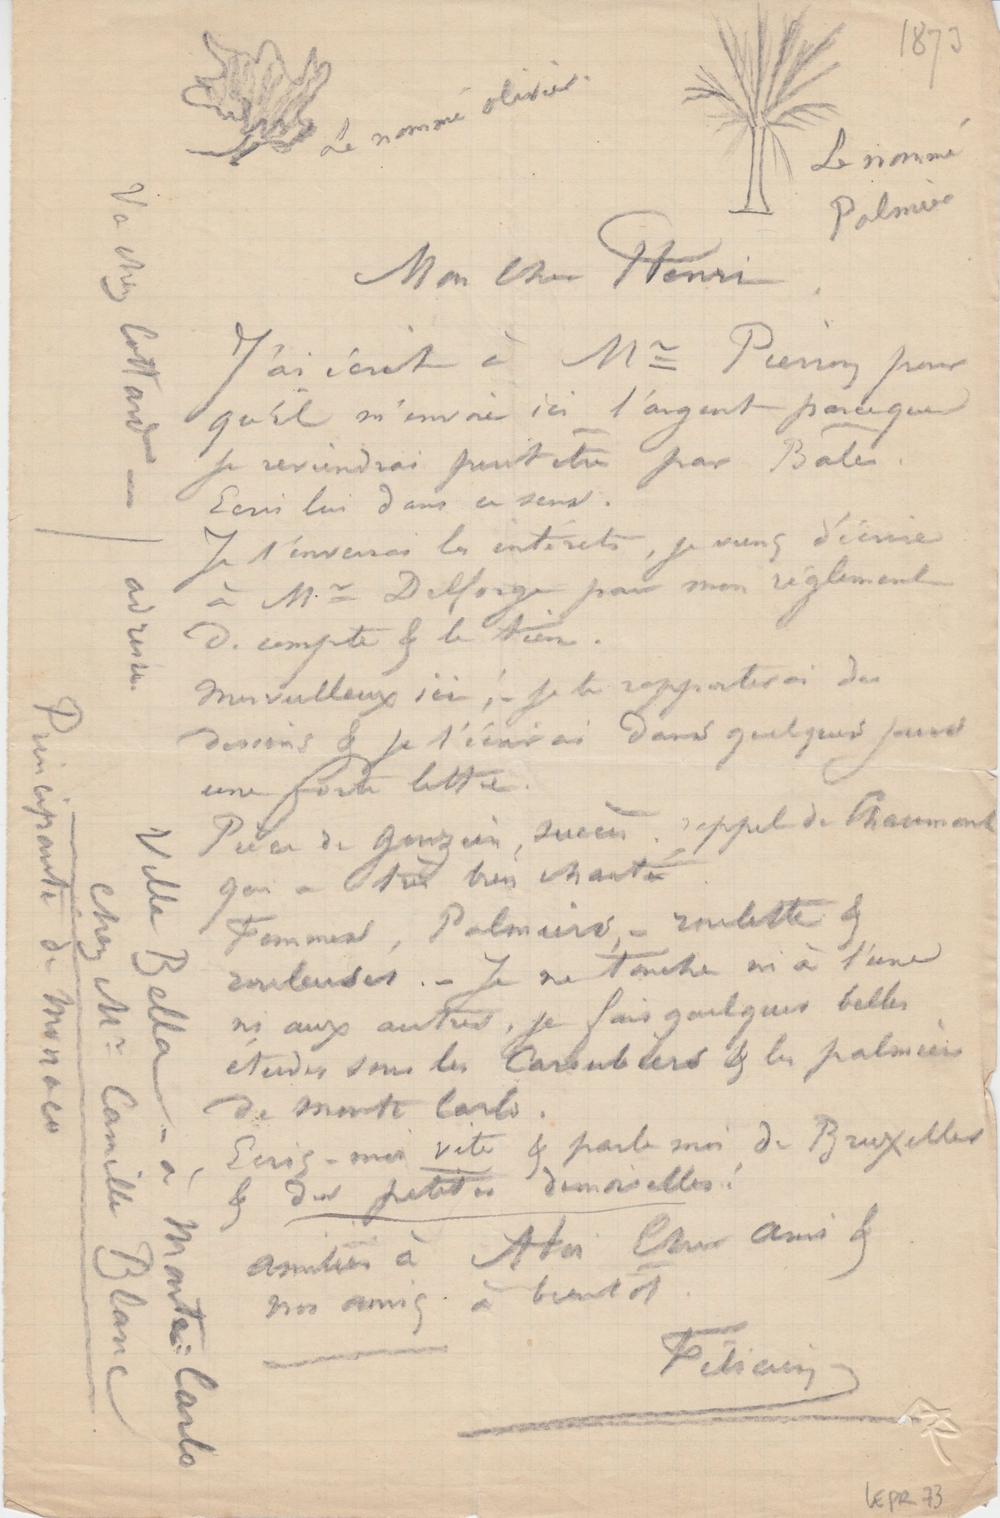 1873
Le nommé olivier.
Le nommé
Palmier
Mon cher Henri
J'ai écrit à Mr Pierron pour
qu'il m'envoie ici l'argent parceque
je reviendrai peut être par Bâle.
Ecris lui dans ce sens.
Je t'enverrai les intérêts, je viens d'écrire
à Mr Delforge pour mon règlement
de compte & le tien.
Merveilleux ici ; - je te rapporterai des
dessins & je t'écrirai dans quelques jours
une forte lettre.
Pièce de , succès. rappel de Chaumont
qui a très bien chanté.
Femmes, Palmiers, - roulette &
rouleuses. - Je ne touche ni à l'une
ni aux autres, je fais quelques belles
études sous les Caroubiers & les palmiers
de Monte Carlo.
Ecris-moi vite & parle moi de Bruxelles
& des petites demoiselles!
amitiés à toi Cher ami &
nos amis à bientôt.
Félicien
Va chez Cottard — adresse.
Villa Bella - à Monte-Carlo
chez Mr Camille Blanc
Principauté de Monaco
LEPR 73